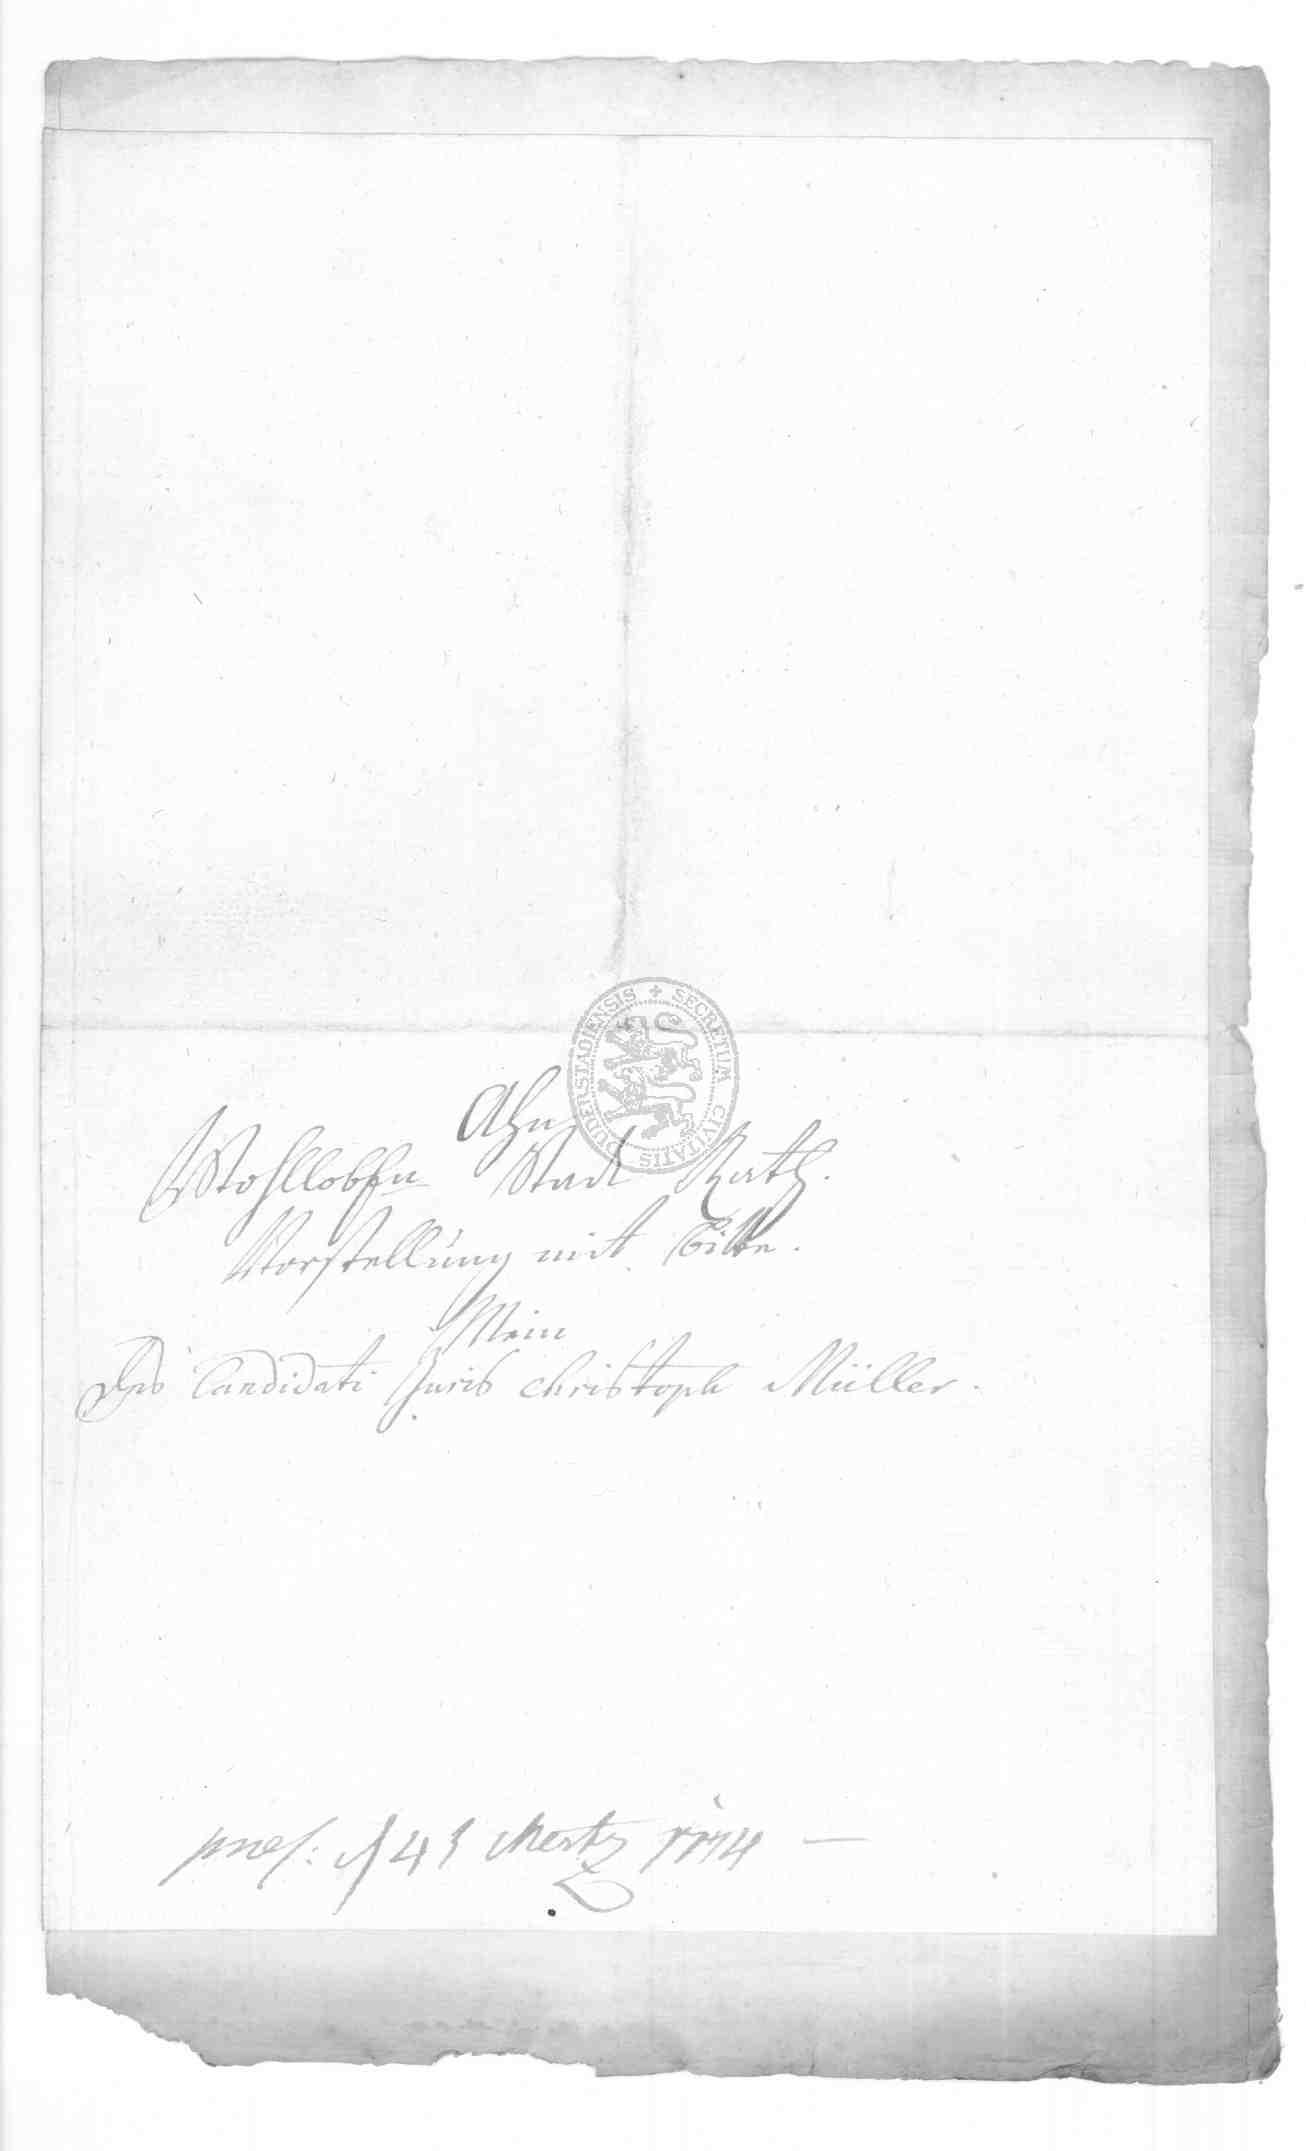 SECRETUM CIVITATIS DUDERSTADIENSIS
Ahn
Wohllobsn Stad Rath.
Vorstellung mit bitte.
Mein
Des Candidati Juris christoph Müller.
pres: d 4 Mertz 1774 —